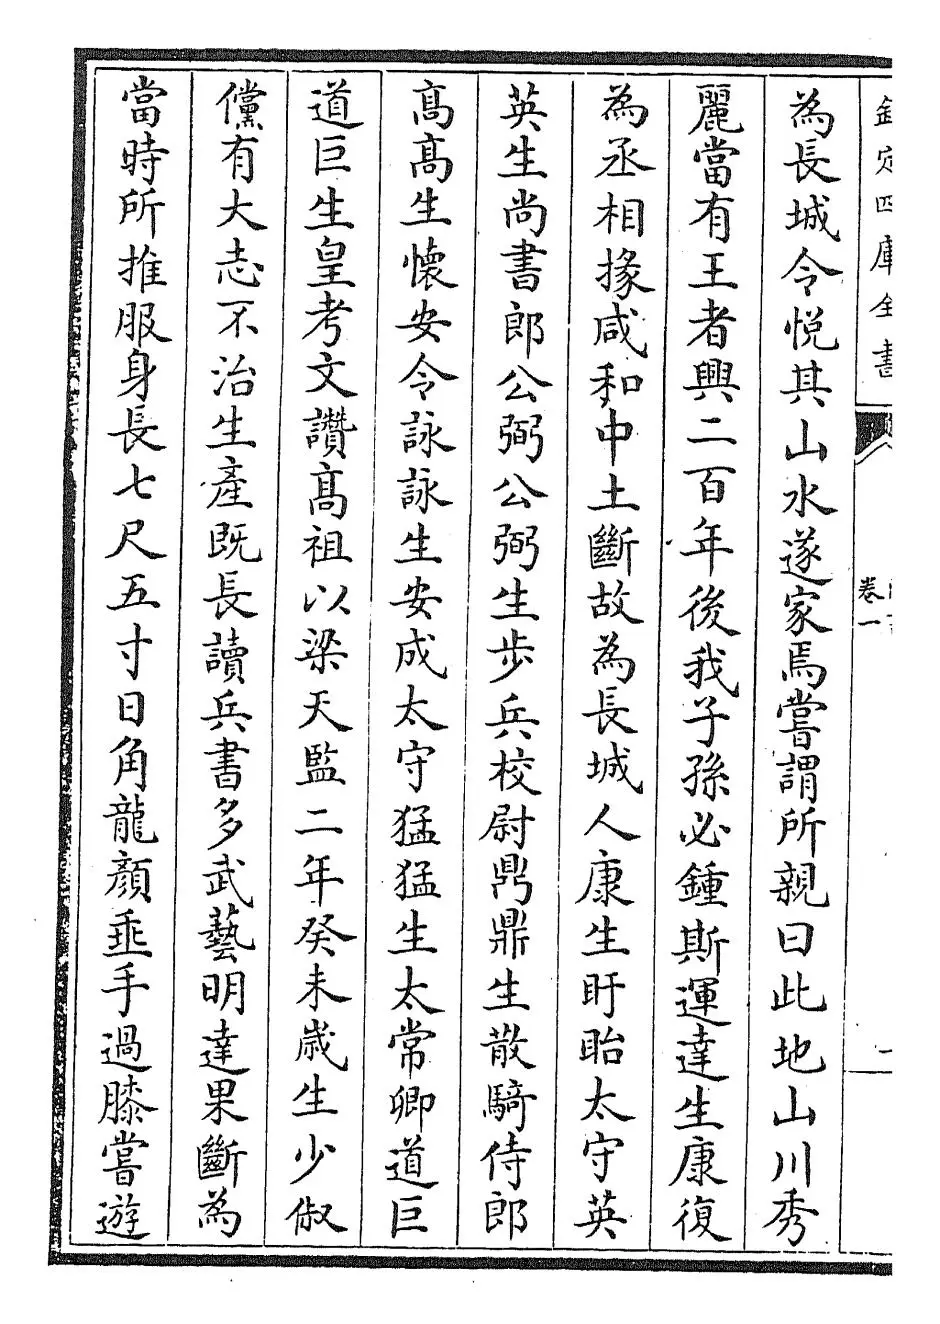 欽定四庫全書
卷一
為長城令悅其山水遂家焉嘗謂所親曰此地山川秀
麗當有王者興二百年後我子孫必鍾斯運達生康復
為丞相掾咸和中土斷故為長城人康生盱眙太守英
英生尚書郎公弼公弼生步兵校尉鼎鼎生散騎侍郎
高高生懷安令詠詠生安成太守猛猛生太常卿道巨
道巨生皇考文讚高祖以梁天監二年癸未歲生少俶
儻有大志不治生產既長讀兵書多武藝明達果斷為
當時所推服身長七尺五寸日角龍顏垂手過膝嘗遊